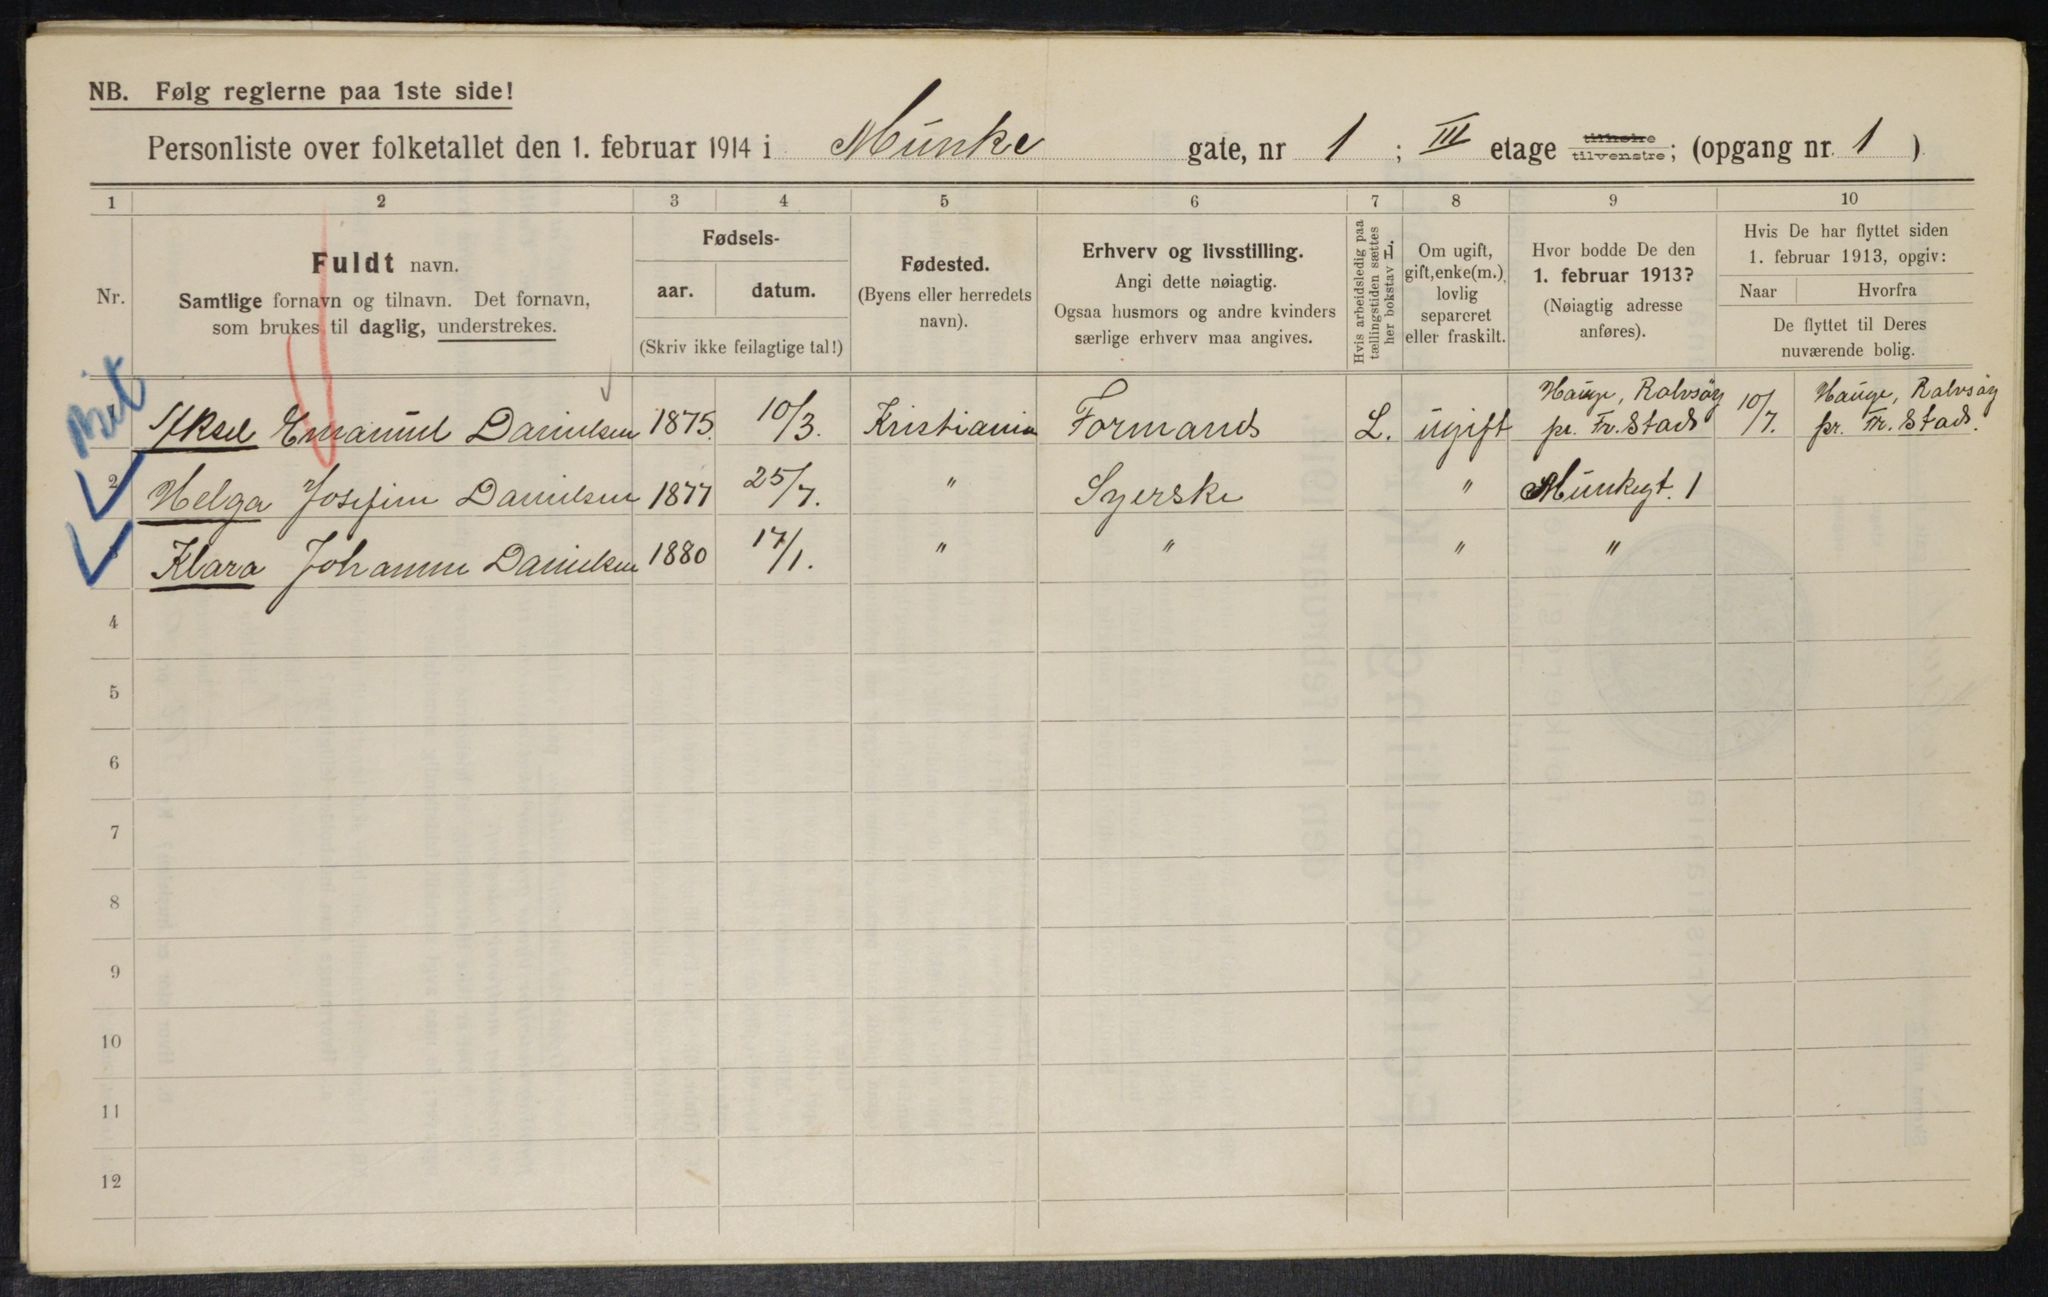 NB. Følg reglerne paa 1ste side!
Personliste over folketallet den 1. februar 1914 i Munke gate, nr 1 ; III etage tilhøire tilvenstre; (opgang nr. 1 )
1 2 3 4 5 6 7 8 9 10
Nr.
Fuldt navn.
Samtlige fornavn og tilnavn. Det fornavn,
som brukes til daglig, understrekes.
Fødsels-
aar. datum.
(Skriv ikke feilagtige tal!)
Fødested.
(Byens eller herredets
navn).
Erhverv og livsstilling.
Angi dette nøiagtig.
Ogsaa husmors og andre kvinders
særlige erhverv maa angives.
Hvis arbeidsledig paa
tællingstiden sættes
her bokstav L.
Om ugift,
gift, enke(m.),
lovlig
separeret
eller fraskilt.
Hvor bodde De den
1. februar 1913?
(Nøiagtig adresse
anføres).
Hvis De har flyttet siden
1. februar 1913, opgiv:
Naar Hvorfra
De flyttet til Deres
nuværende bolig.
Aksel Emanuel Danielsen 1875. 10/3. Kristiania Formand L. ugift Hauge, Rolvsøy pr. Fr.stad 10/7. Hauge, Rolvsøy pr. Fr.stad.
2 Helga Josefine Danielsen 1877 25/7. " Syerske " Munkegt. 1
3 Klara Johanne Danielsen 1880 17/1. " " " "
4
5
6
7
8
9
10
11
12